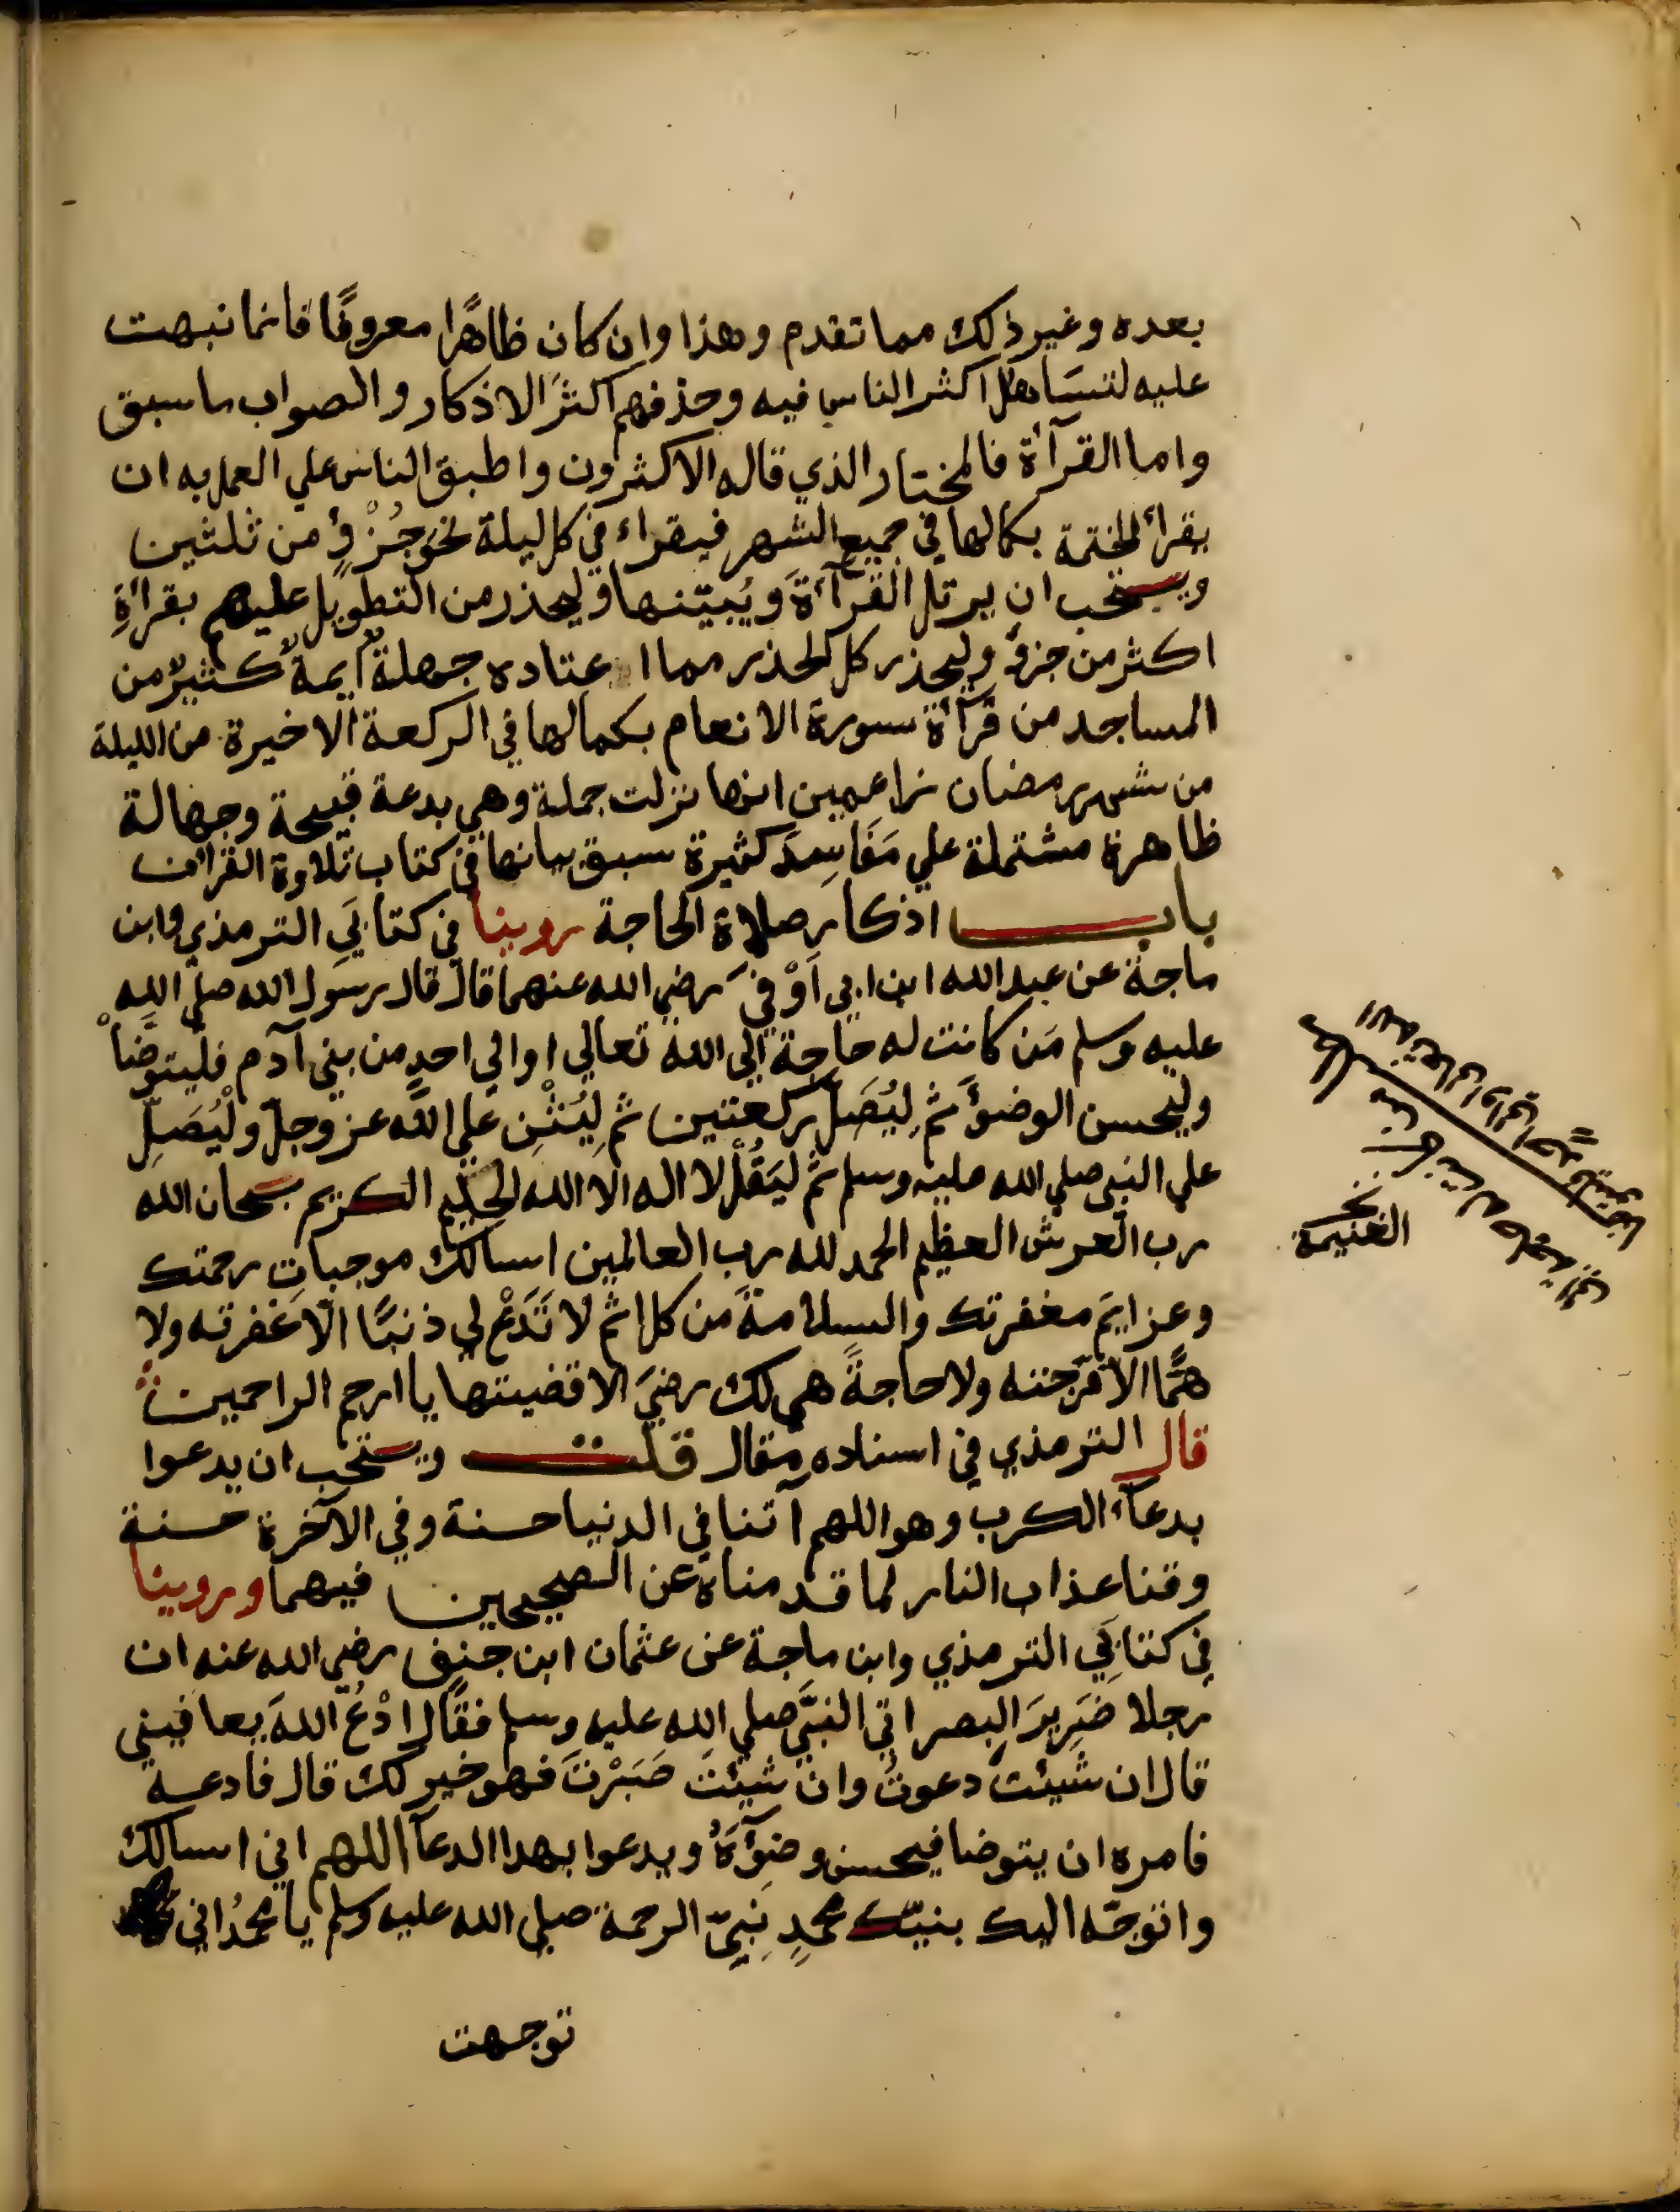 بعده وغير ذلك مما تقدم وهذا وان كان ظاهرًا معروفًا فانما نبهت
عليه لتسَاهل اكثر الناس فيه وحذفهم اكثرَ الاذكار والصواب ما سبق
واما القرآأة فالمختار الذي قاله الاكثرون واطبق الناس علي العمل به ان
يقرأ الختمة بكمالها في جميع الشهر فيقراء في كل ليلة نحوَ جُزْؤٍ من ثلثين
ويستحب ان يرتل القرآأةَ ويُبيّنها وليحذر من التطويل عليهم بقرأةِ
اكثر من جزؤ وليحذر كل الحذر مما اعتاده جهلةُ ايمة كثيرٌ من
المساجد من قرآأة سورة الانعام بكمالها في الركعة الاخيرة من الليلة
من شهر رمضان زاعمين انها نزلت جملة وهي بدعة قبيحة وجهالة
ظاهرة مشتملة علي مَفَاسِدَ كثيرة سبق بيانها في كتاب تلاوة القرآن
باب اذكار صلاة الحاجة روينا في كتابَي الترمذي وابن
ماجة عن عبد الله ابن ابي اَوْفيَ رضي الله عنهما قال قال رسول الله صلي الله
عليه وسلم مَن كانت له حاجة الي الله تعالي او الي احدٍ من بني آدم فليتوضَّأْ
وليحسن الوضؤَ ثم لِيُصَلِّ ركعتين ثم لِيُثْنِ علي اللَّه عز وجلّ ولْيُصَلِّ
علي النبي صلي الله عليه وسلم ثم ليَقُلْ لا اله الا الله الحليم الكريم سبحان الله
رب العرش العظيم الحمد لله رب العالمين اسالك موجباتِ رحمتك
وعزايمَ مغفرتك والسلامةَ من كل اثم لا تَدَعْ لي ذنبًا الّا غفرته ولا
همًّا الا فرّجته ولا حاجةً هي لك رضيً الا قضيتها يا ارحم الراحمين
قال الترمذي في اسناده مقال قلت ويستحب ان يدعوا
بدعآء الكرب وهو اللهم آتنا في الدنيا حسنة وفي الآخرة حسنة
وقنا عذاب النار لما قدمناه عن الصحيحين فيهما وروينا
في كتابَي الترمذي وابن ماجة عن عثمان ابن حنيف رضي الله عنه ان
رجلا ضَرِيرَ البصر اتي النبيَّ صلي الله عليه وسلم فقال ادْعُ اللهَ يعافيني
قال ان شيئتَ دعوتُ وان شيئتَ صَبَرْتَ فهو خير لك قال فادعه
فامره ان يتوضا فيحسن وضؤَهُ ويدعوا بهدا الدعآ اللهم اني اسالك
واتوجّه اليك بنبيّك محمدٍ نبيِّ الرحمة صلي الله عليه وسلم يا محمدُ اني
توجهت
الغنيمة